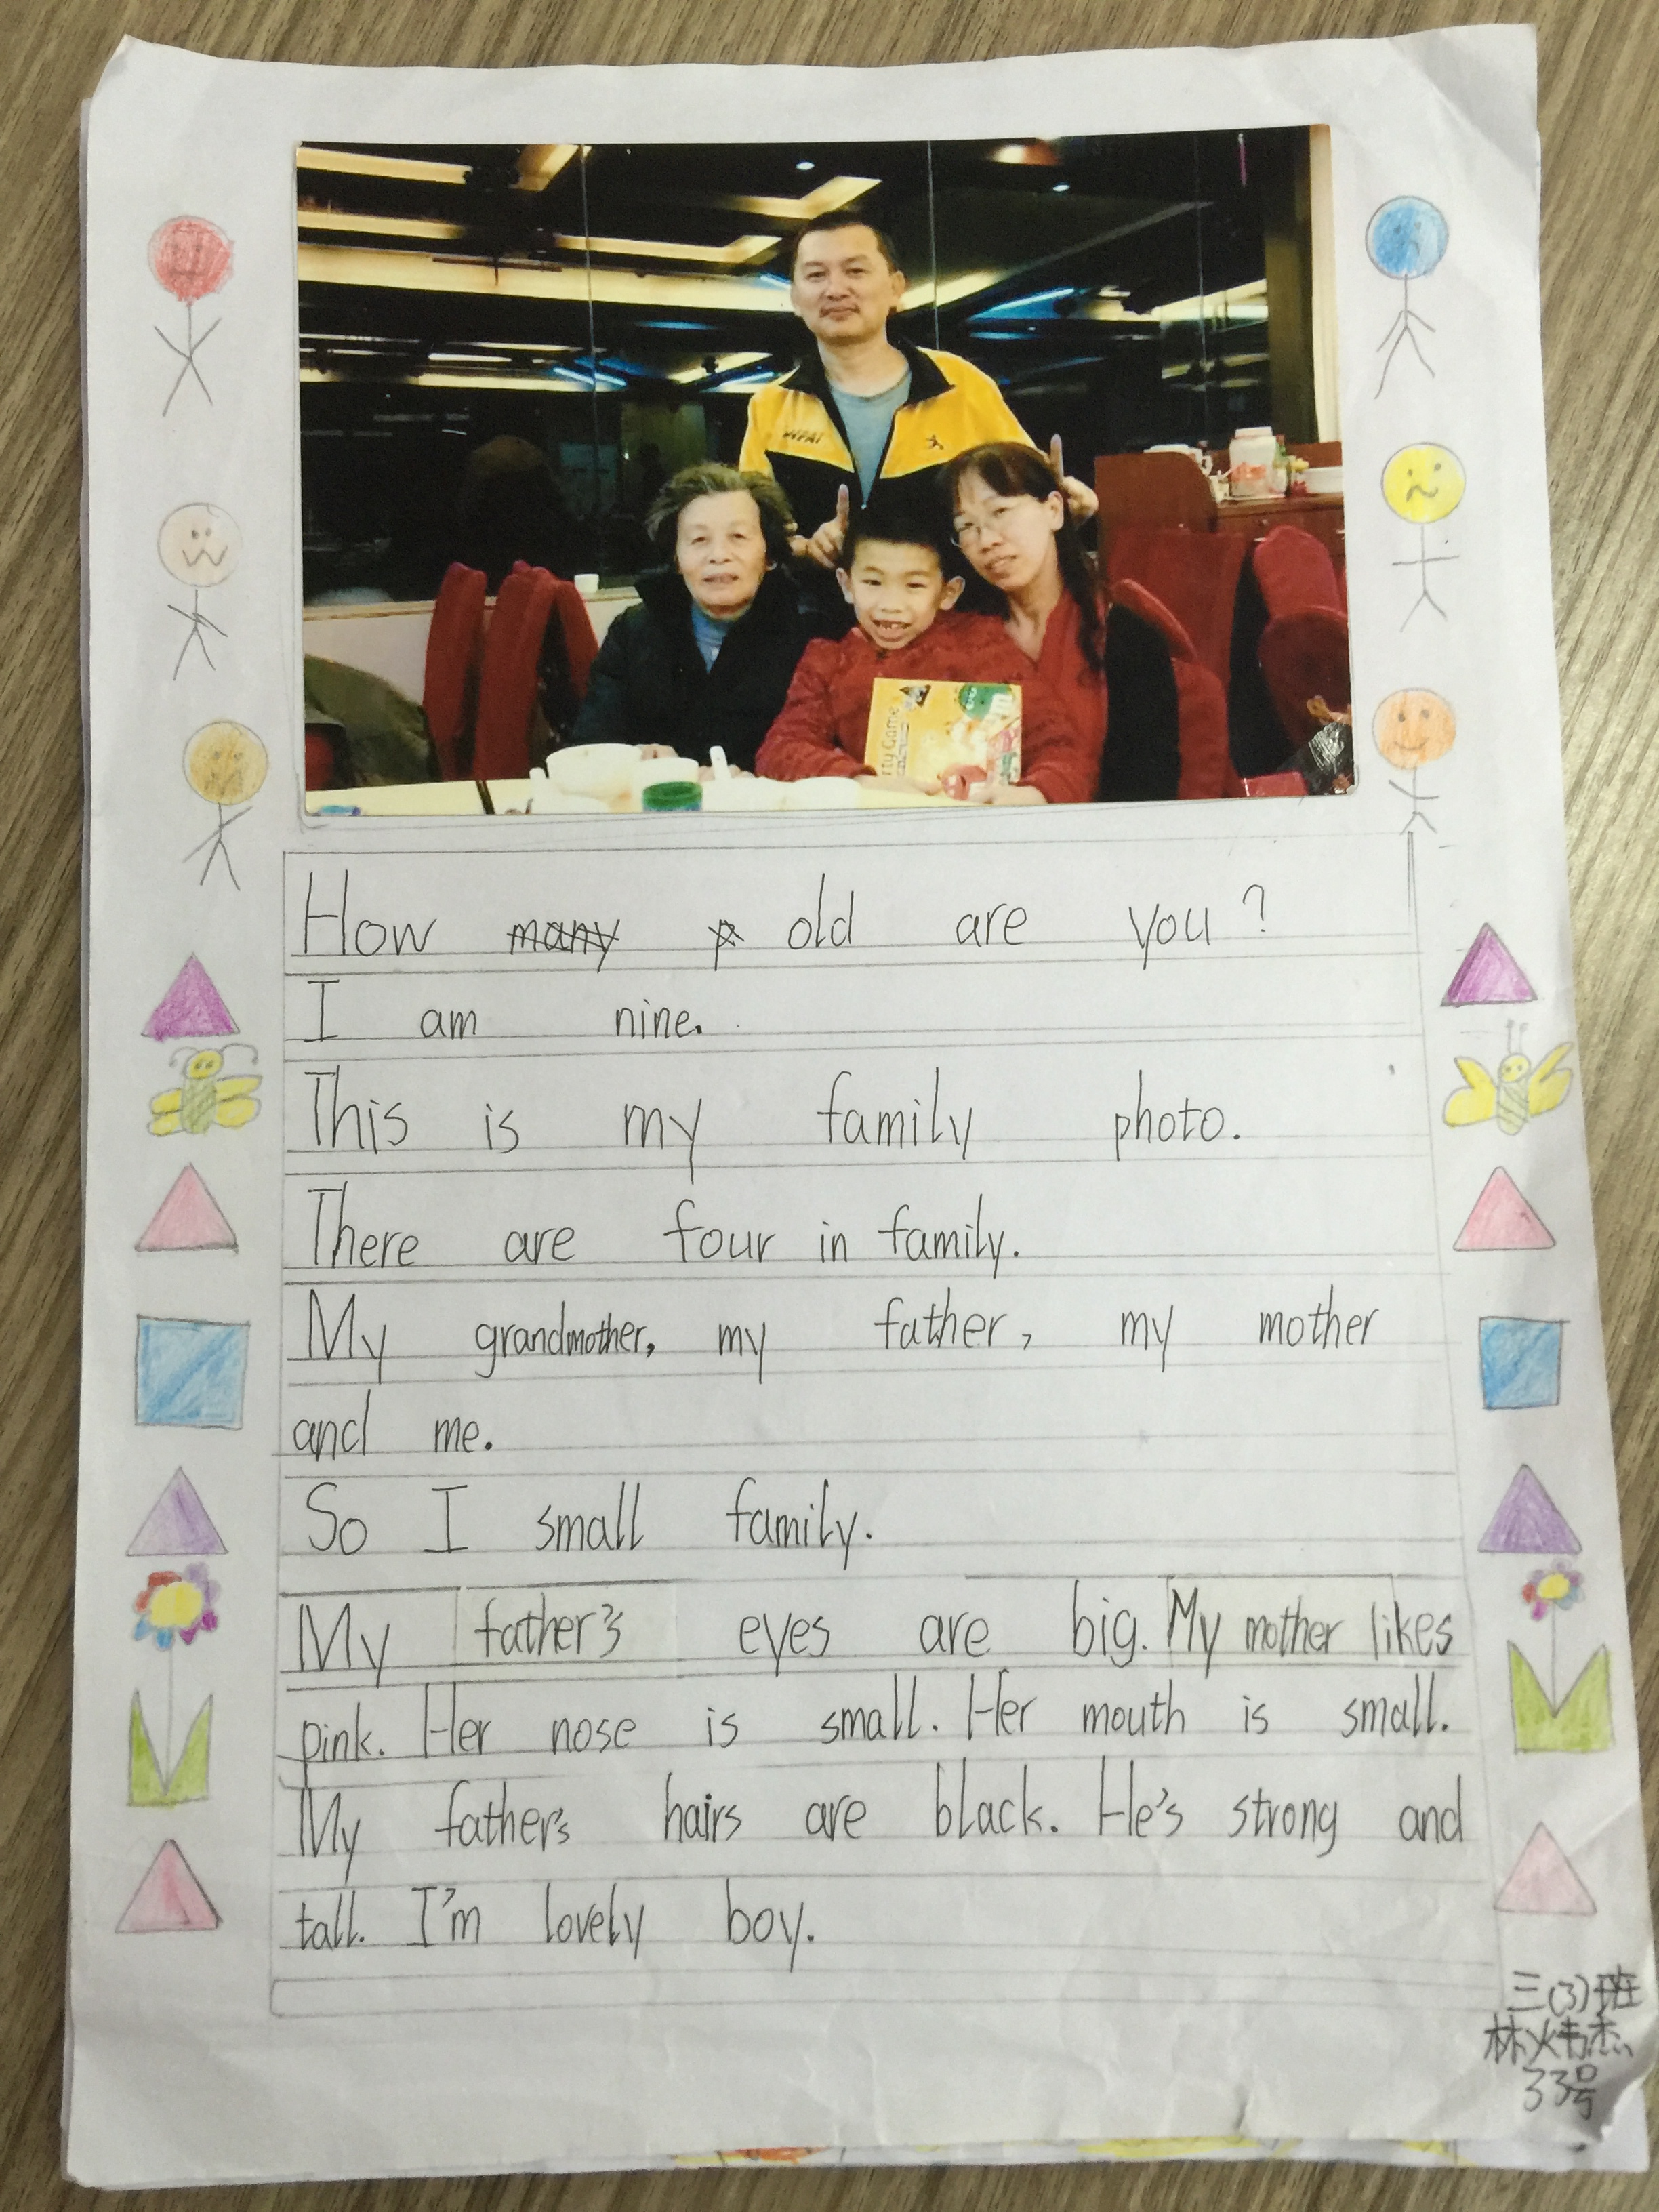 How old are you?
I am nine.
This is my family photo.
There are four in family.
My grandmother, my father, my mother
and me.
So I small family.
My father's eyes are big. My mother likes
pink. Her nose is small. Her mouth is small.
My father's hairs are black. He's strong and
tall. I'm lovely boy.
三(3)班
林炜杰
33号